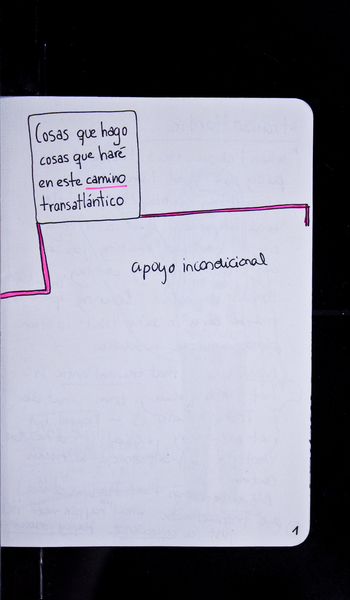 Cosas que hago
cosas que haré
en este camino
transatlántico
apoyo incondicional
1